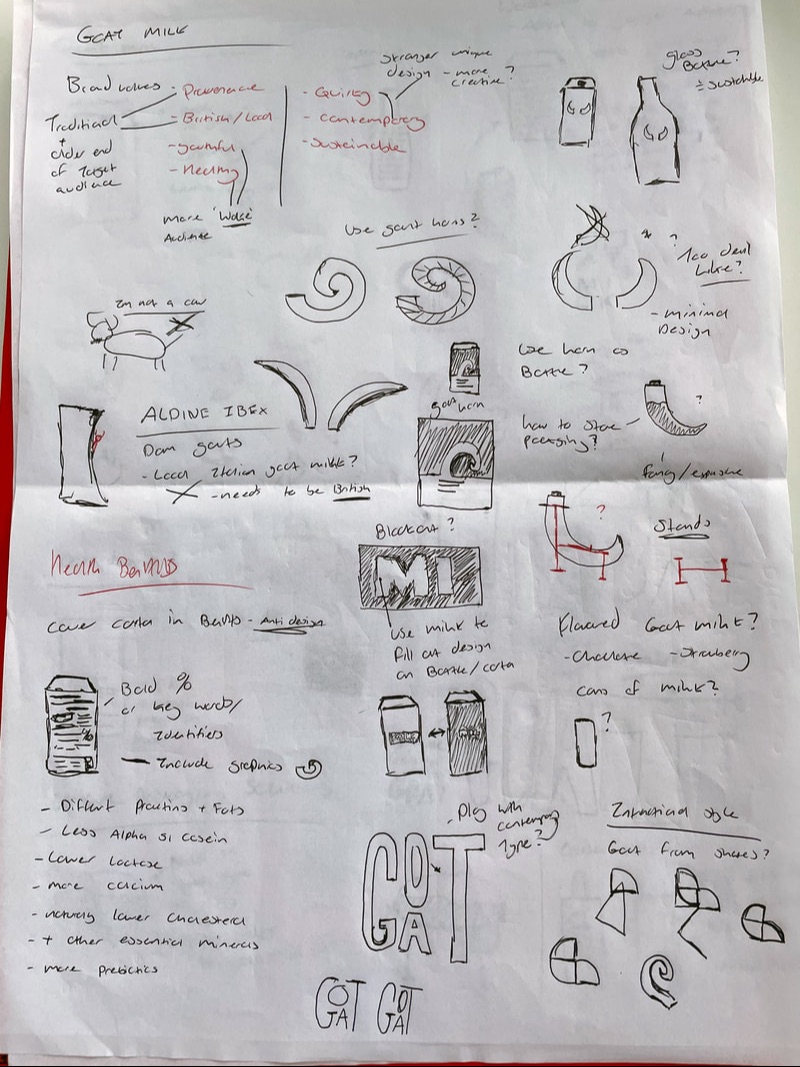 GOAT MILK
Stronger unique
design - more
creative?
glass
Bottle?
= Sustainable
Brand values - Provenance
Traditional - British / Local
+
older end
of Target
audience
- youthful
- Healthy
more 'Woke'
Audience
- Quirky
- contemporary
- Sustainable
use goat horns?
Too devil
like?
- minimal
Design
I'm not a cow
use horn as
Bottle?
goat horn
?
how to store
packaging?
fancy / expensive
ALPINE IBEX
Dam goats
- Local Italian goat milk?
- needs to be British
Blockout?
MI
?
Stands
Health Benefits
cover carton in Benefits - Anti design
use milk to
fill out design
on Bottle/carton
Flavoured Goat milk?
- Chocolate - Strawberry
cans of milk?
?
Bold %
or key words/
Identifiers
%
- Include graphics
- Different Proteins + Fats
- Less Alpha S1 casein
- Lower lactose
- more calcium
- naturally lower cholesterol
- + other essential minerals
- more prebiotics
- Play with
contemporary
Type?
GOAT
International style
Goat from shapes?
GOAT GOAT